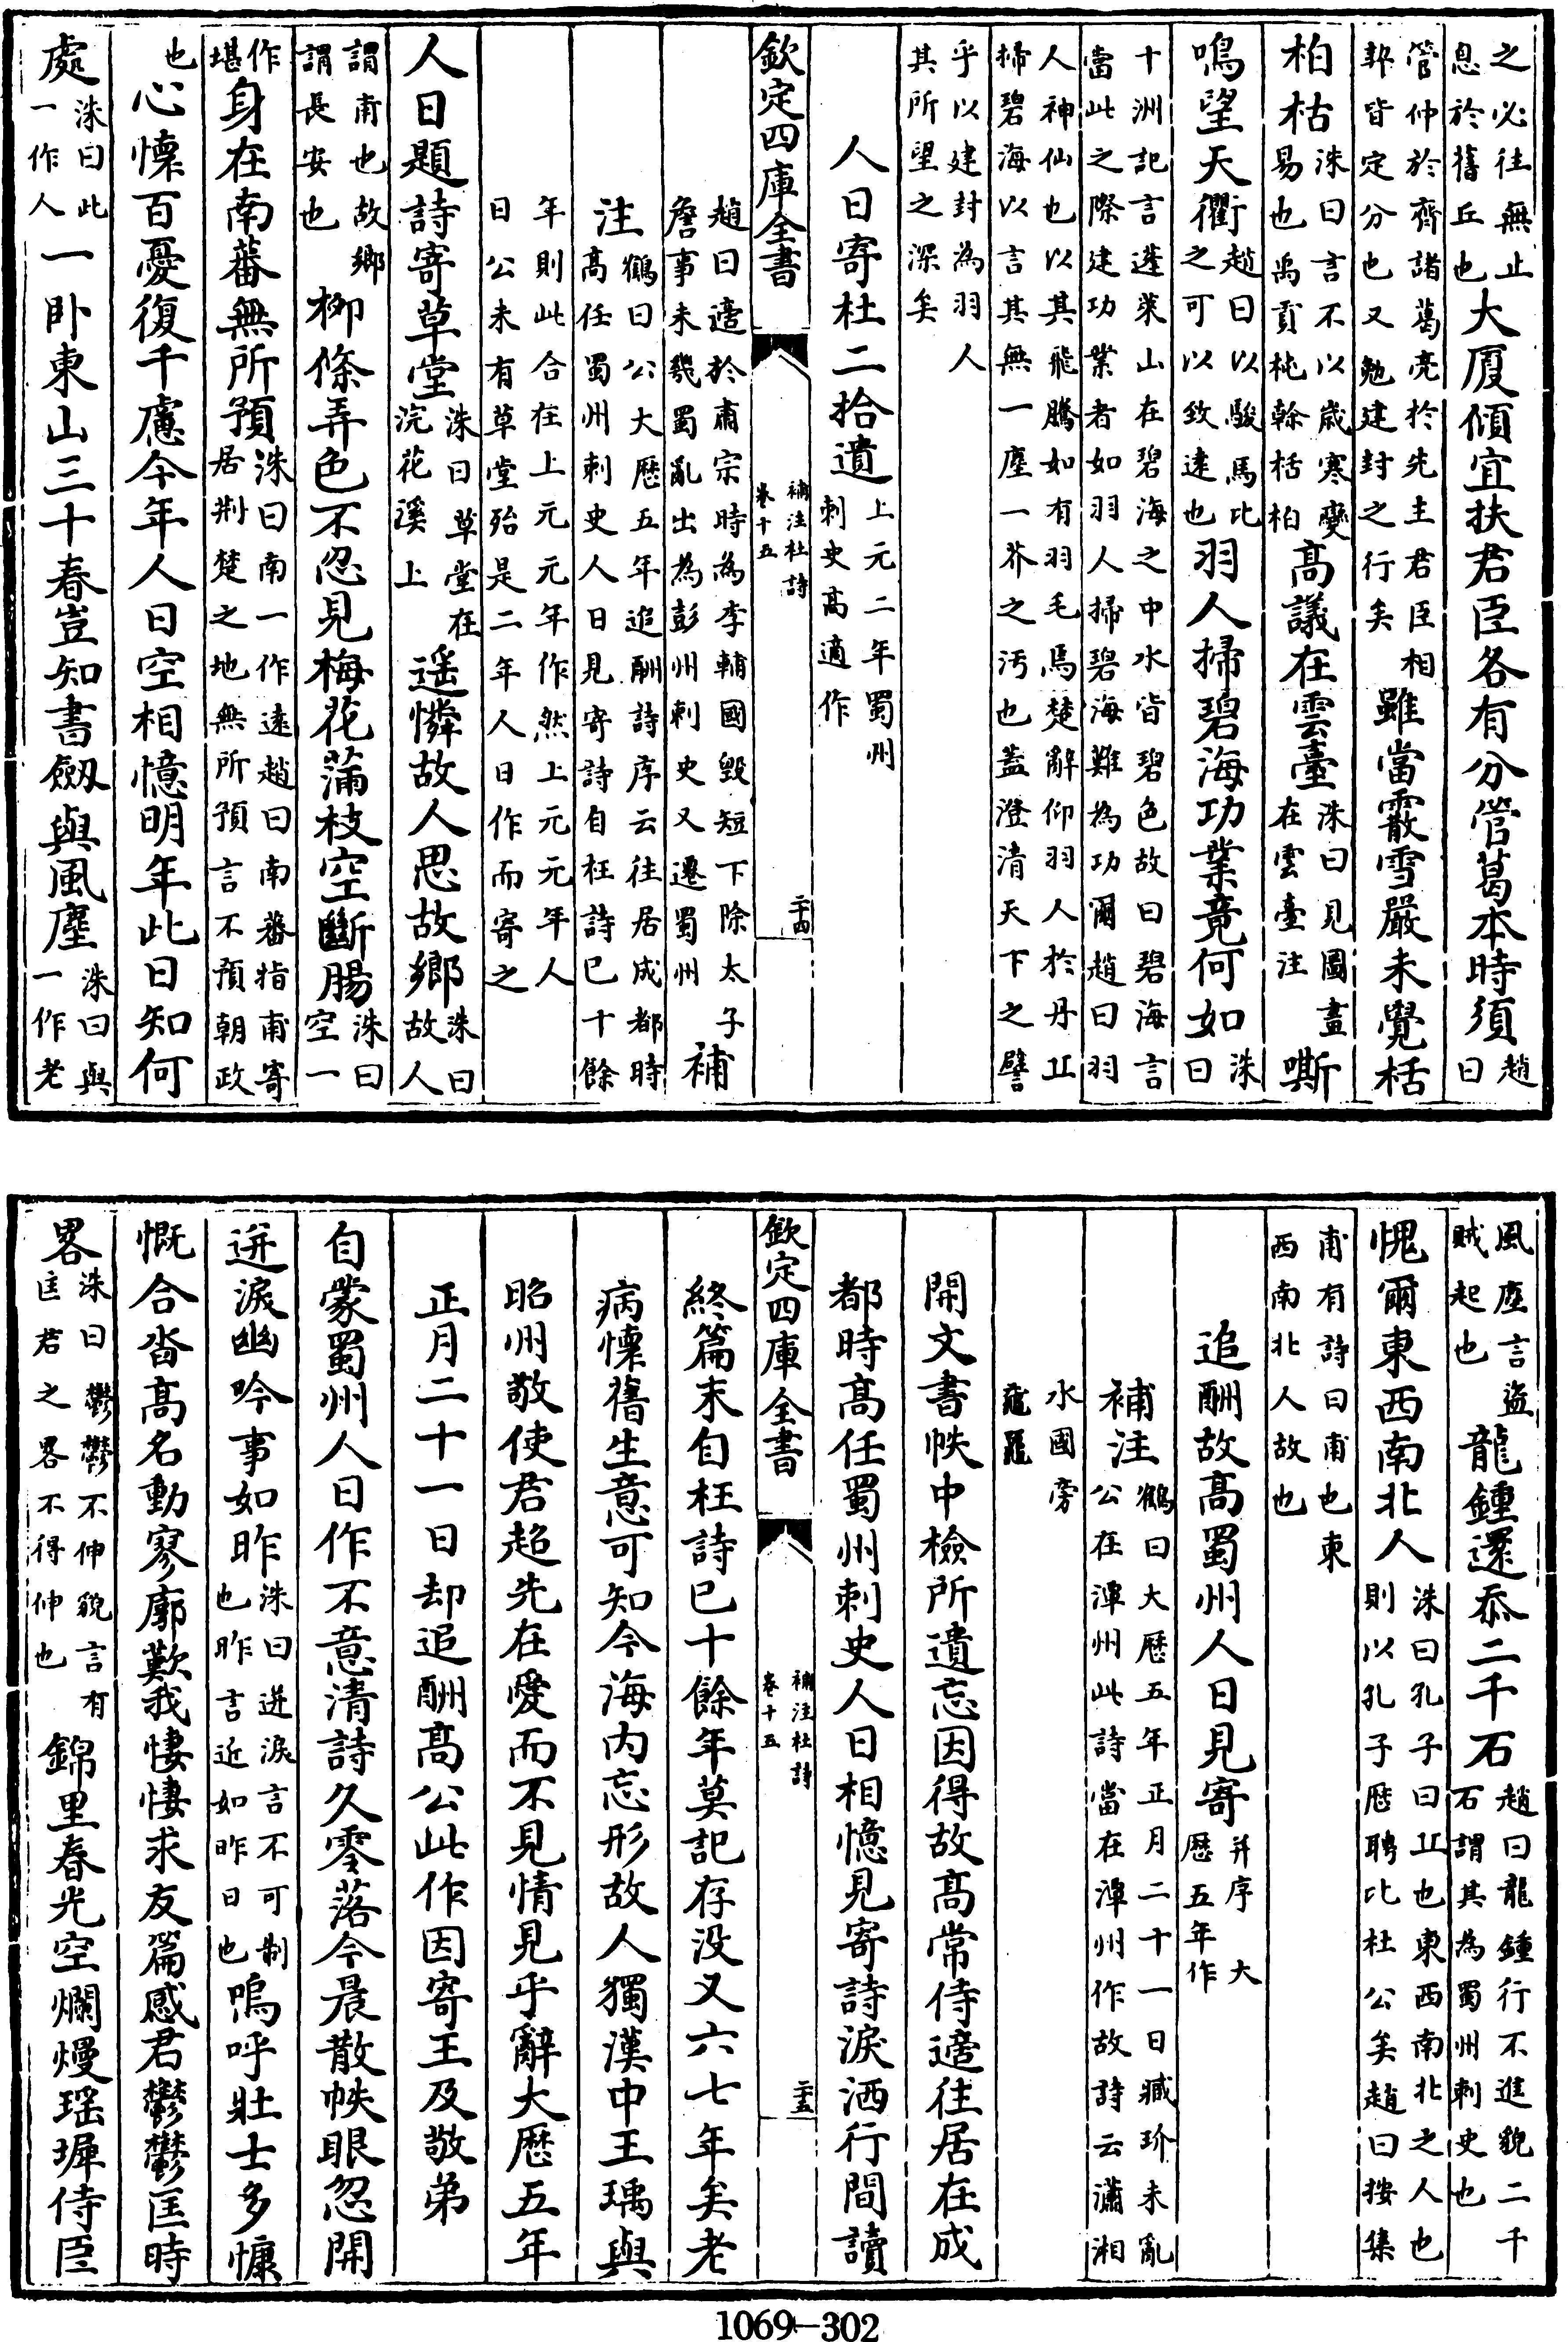 之必往無止息於舊丘也大厦傾宜扶君臣各有分管葛本時須趙曰
管仲於齊諸葛亮於先主君臣相契皆定分也又勉建封之行矣雖當霰雪嚴未覺栝
柏枯洙曰言不以歲寒變易也禹貢杶榦栝柏高議在雲臺洙曰見圖畫在雲臺注嘶
鳴望天衢趙曰以駿馬比之可以致逺也羽人掃碧海功業竟何如洙曰
十洲記言蓬萊山在碧海之中水皆碧色故曰碧海言當此之際建功業者如羽人掃碧海難為功爾趙曰羽
人神仙也以其飛騰如有羽毛焉楚辭仰羽人於丹丘掃碧海以言其無一塵一芥之汚也蓋澄清天下之譬
乎以建封為羽人其所望之深矣
人日寄杜二拾遺上元二年蜀州刺史高適作
欽定四庫全書 補注杜詩卷十五 二十四
趙曰適於肅宗時為李輔國毁短下除太子詹事未幾蜀亂出為彭州刺史又遷蜀州補
注鶴曰公大厯五年追酬詩序云往居成都時高任蜀州刺史人日見寄詩自枉詩已十餘
年則此合在上元元年作然上元元年人日公未有草堂殆是二年人日作而寄之
人日題詩寄草堂洙曰草堂在浣花溪上遥憐故人思故鄉洙曰故人
謂甫也故鄉謂長安也柳條弄色不忍見梅花蒲枝空斷腸洙曰空一
作堪身在南蕃無所預洙曰南一作逺趙曰南蕃指甫寄居荆楚之地無所預言不預朝政
也心懷百憂復千慮今年人日空相憶明年此日知何
處洙曰此一作人一卧東山三十春豈知書劒與風塵洙曰與一作老
風塵言盜賊起也龍鍾還忝二千石趙曰龍鍾行不進貌二千石謂其為蜀州刺史也
愧爾東西南北人洙曰孔子曰丘也東西南北之人也則以孔子厯聘比杜公矣趙曰按集
甫有詩曰甫也東西南北人故也
追酬故高蜀州人日見寄并序 大厯五年作
補注鶴曰大厯五年正月二十一日臧玠未亂公在潭州此詩當在潭州作故詩云瀟湘
水國旁黿鼉
開文書帙中檢所遺忘因得故高常侍適往居在成
都時高任蜀州刺史人日相憶見寄詩淚洒行間讀
欽定四庫全書 補注杜詩卷十五 二十五
終篇末自枉詩已十餘年莫記存没又六七年矣老
病懷舊生意可知今海内忘形故人獨漢中王瑀與
昭州敬使君超先在愛而不見情見乎辭大厯五年
正月二十一日却追酬高公此作因寄王及敬弟
自蒙蜀州人日作不意清詩久零落今晨散帙眼忽開
迸淚幽吟事如昨洙曰迸淚言不可制也昨言近如昨日也嗚呼壯士多慷
慨合沓高名動寥廓歎我悽悽求友篇感君鬱鬱匡時
畧洙曰鬱鬱不伸貌言有匡君之畧不得伸也錦里春光空爛熳瑶墀侍臣
1069—302